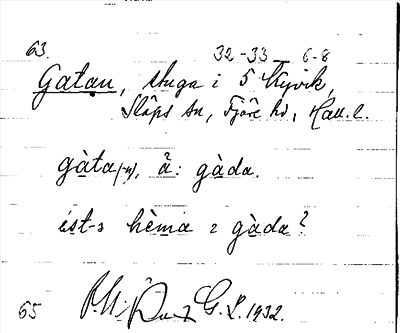 63.
32-33 6-8
Gatan, stuga i 5 Kyvik,
Släps sn, Fjäre hd, Hall. l.
gàta (-n), ä̀: gàda.
ist-s hèma ɿ gàda?
65 G. L. 1932.